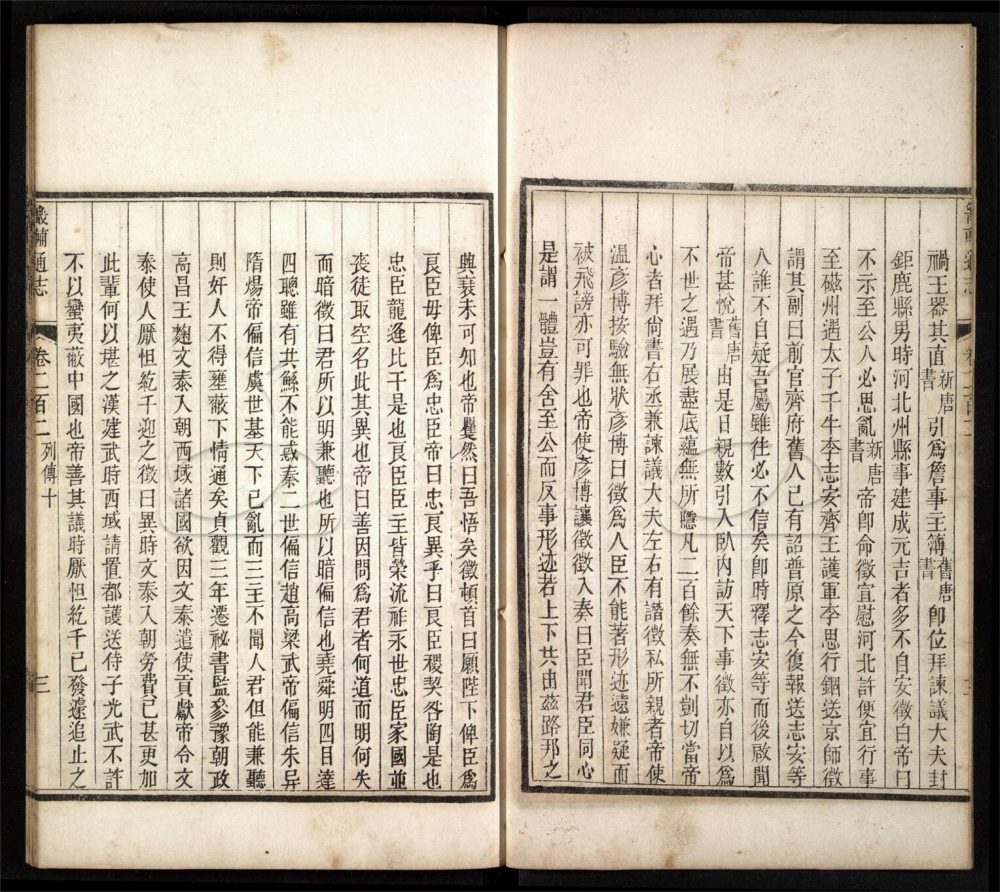 禍王器其直新唐書引爲詹事主簿舊唐書卽位拜諫議大夫封
鉅鹿縣男時河北州縣事建成元吉者多不自安徵白帝曰
不示至公人必思亂新唐書帝卽命徵宣慰河北許便宜行事
至磁州遇太子千牛李志安齊王護軍李思行錮送京師徵
謂其副曰前官齊府舊人已有詔普原之今復報送志安等
人誰不自疑吾屬雖往必不信矣卽時釋志安等而後啟聞
帝甚悅舊唐書由是日親數引入臥內訪天下事徵亦自以爲
不世之遇乃展盡底蘊無所隱凡二百餘奏無不剴切當帝
心者拜尙書右丞兼諫議大夫左右有譖徵私所親者帝使
溫彥博按驗無狀彥博曰徵爲人臣不能著形迹遠嫌疑而
被飛謗亦可罪也帝使彥博讓徵徵入奏曰臣聞君臣同心
是謂一體豈有舍至公而反事形迹者上下共由茲路邦之
興衰未可知也帝矍然曰吾悟矣徵頓首曰願陛下俾臣爲
良臣毋俾臣爲忠臣帝曰忠良異乎曰良臣稷契咎陶是也
忠臣龍逄比干是也良臣臣主皆榮流祚永世忠臣家國並
喪徒取空名此其異也帝曰善因問爲君者何道而明何失
而暗徵曰君所以明兼聽也所以暗偏信也堯舜明四目達
四聰雖有共鯀不能惑秦二世偏信趙高梁武帝偏信朱异
隋煬帝偏信虞世基天下已亂而三主不聞人君但能兼聽
則奸人不得壅蔽下情通矣貞觀三年遷祕書監參豫朝政
高昌王麴文泰入朝西域諸國欲因文泰遣使貢獻帝令文
泰使人厭怛紇干迎之徵曰異時文泰入朝勞費已甚更加
此輩何以堪之漢建武時西域請置都護送侍子光武不許
不以蠻夷敝中國也帝善其議時厭怛紇干已發遽追止之
畿輔通志 卷二百二 列傳十 三